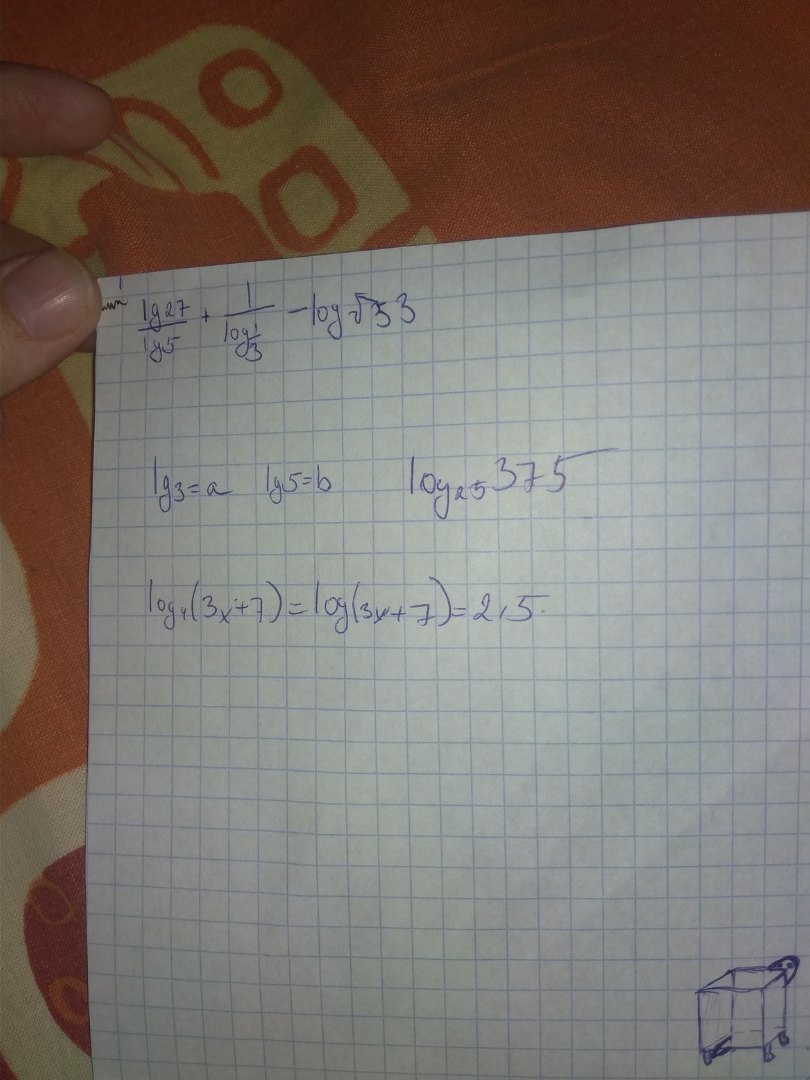 lg27/lg5 + 1/log 1/3 - log √3 3
lg3=a lg5=b log₂₅375
log₄(3x+7)=log(3x+7)=2,5